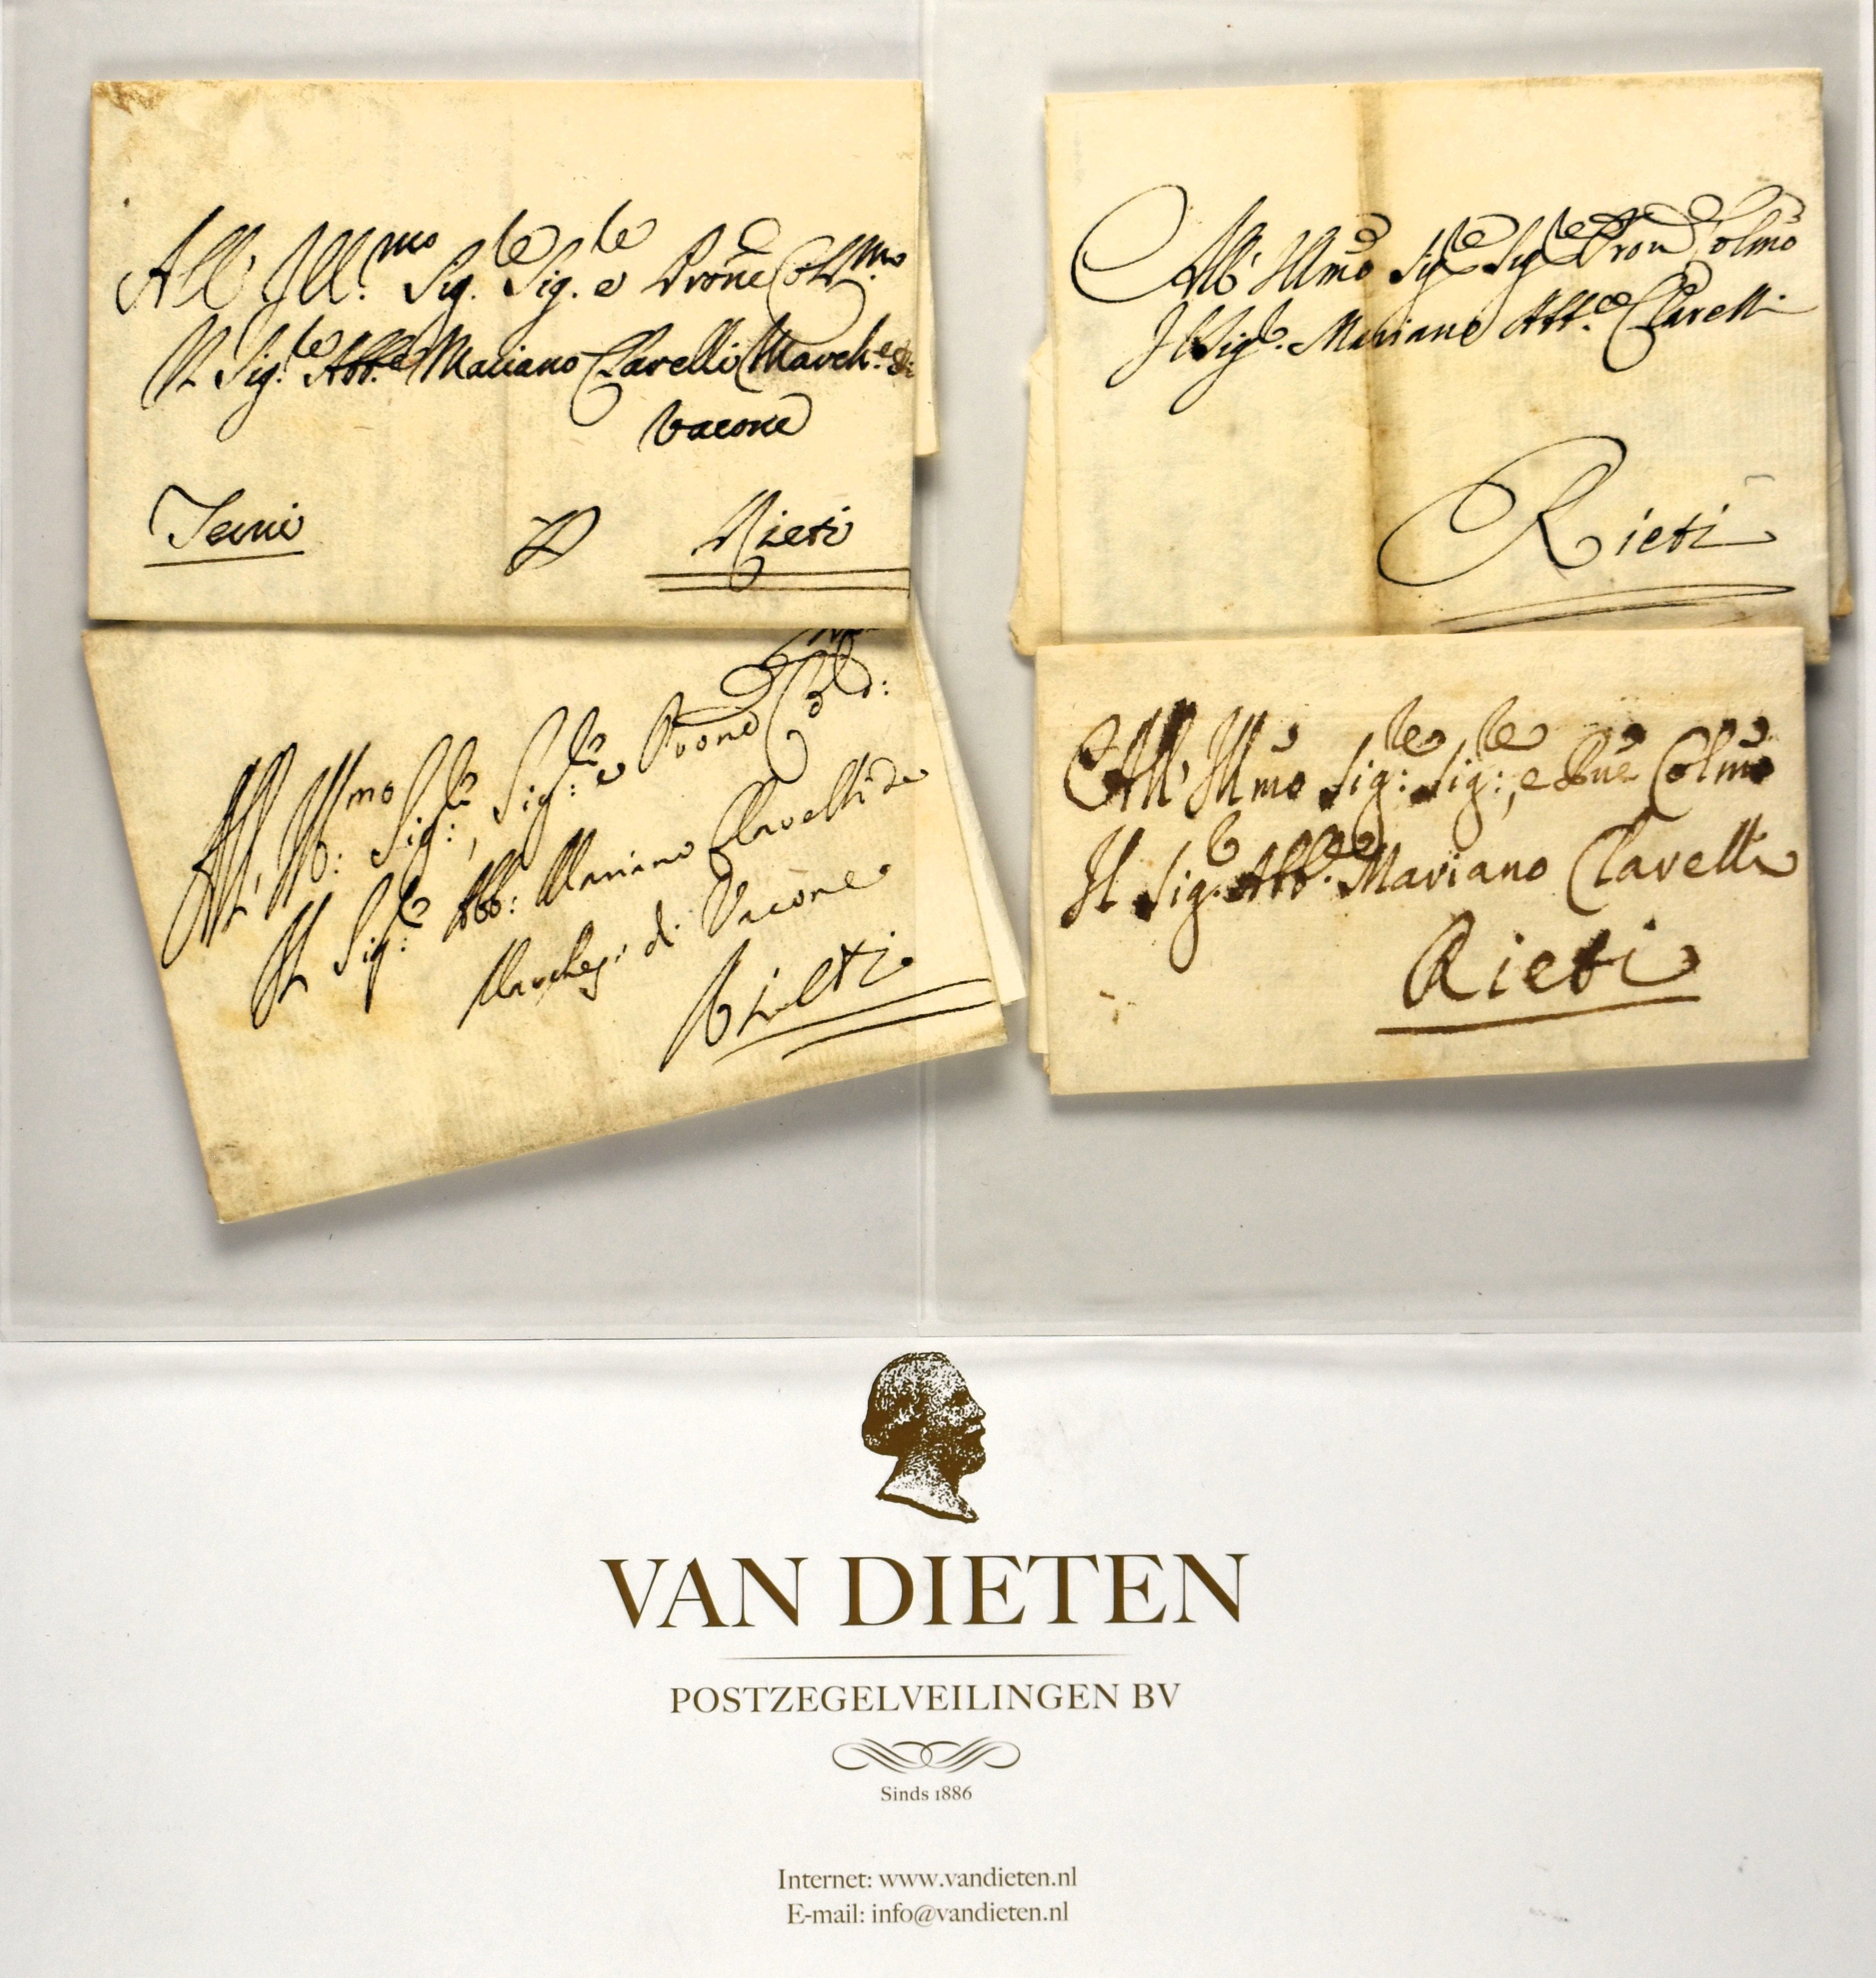 All Ill.mo Sig.re Sig.re e Prone Col.mo
Il Sig.re Abb.e Mariano Clarelli March.e di
Vacone
Terni Rieti
All' Ill.mo Sig:re, Sig:re e Prone Col
Il Sig:re Abb: Mariano Clarelli de
Marchesi di Vacone
Rieti
All' Illmo Sigre Sigre Pron Colmo
Il Sigre Mariano Abb.e Clarelli
Rieti
All' Illmo Sig:re Sig:re, e Pne Colmo
Il Sig.re Abb.e Mariano Clarelli
Rieti
VAN DIETEN
POSTZEGELVEILINGEN BV
Sinds 1886
Internet: www.vandieten.nl
E-mail: info@vandieten.nl